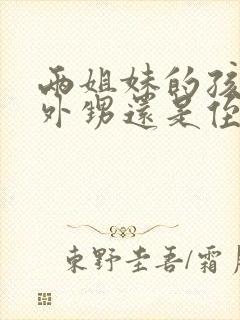 兩姐妹的孩
外甥還是侄
東野圭吾/霜月